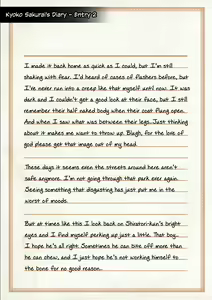 Kyoko Sakurai's Diary - Entry 2
I made it back home as quick as I could, but I'm still
shaking with fear. I'd heard of cases of flashers before, but
I've never ran into a creep like that myself until now. It was
dark and I couldn't get a good look at their face, but I still
remember their half naked body when their coat flung open.
And when I saw what was between their legs...Just thinking
about it makes me want to throw up. Blagh, for the love of
god please get that image out of my head.
These days it seems even the streets around here aren't
safe anymore. I'm not going through that park ever again.
Seeing something that disgusting has just put me in the
worst of moods.
But at times like this I look back on Shiratori-kun's bright
eyes and I find myself perking up just a little. That boy...
I hope he's all right. Sometimes he can bite off more than
he can chew, and I just hope he's not working himself to
the bone for no good reason.